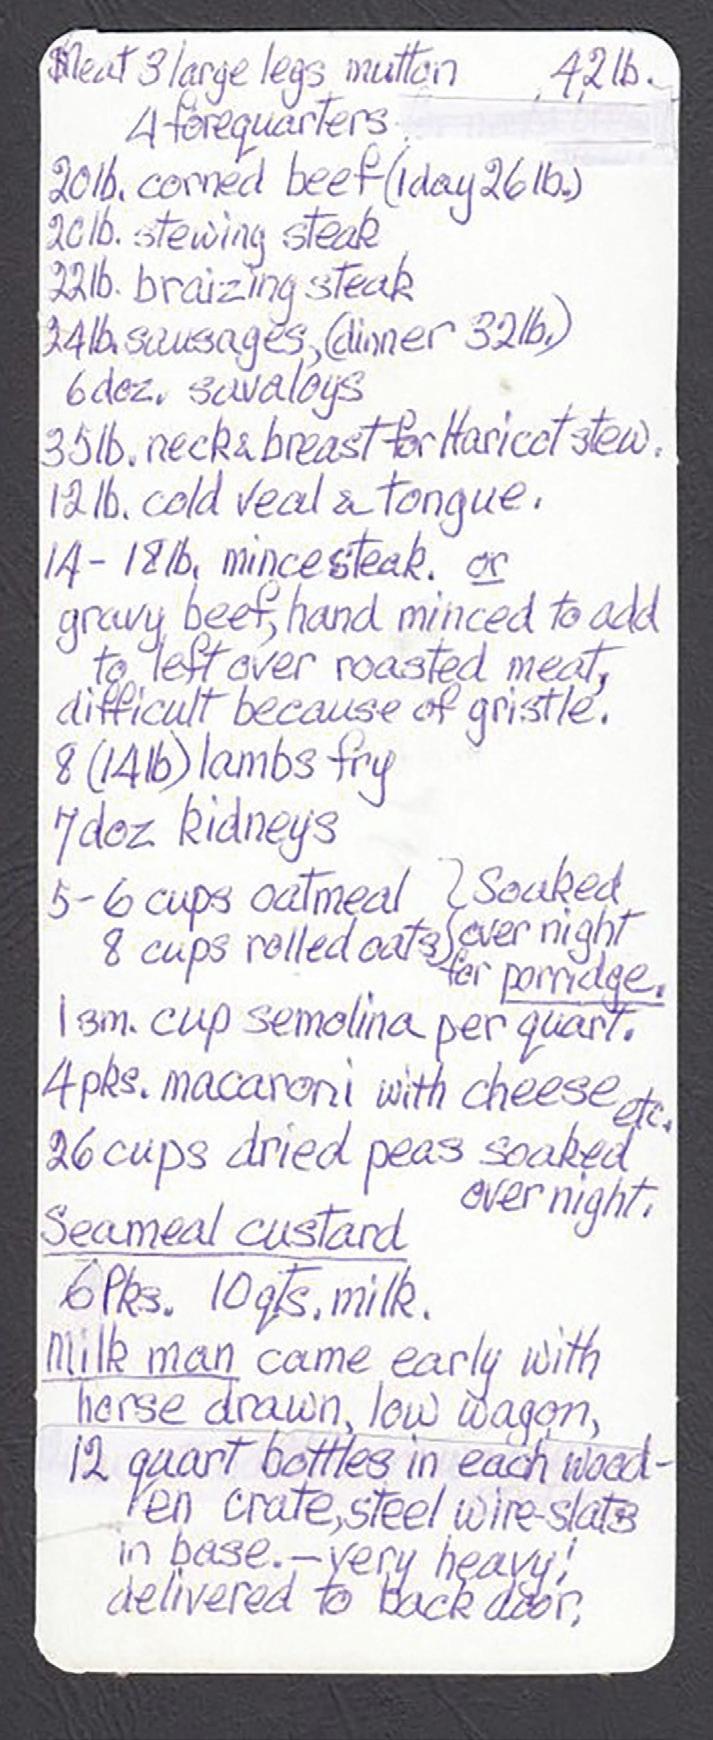 Meat 3 large legs mutton 42 lb.
4 forequarters
20 lb. corned beef (1 day 26 lb.)
20 lb. stewing steak
22 lb. braizing steak
24 lb. sausages, (dinner 32 lb.)
6 doz. savaloys
35 lb. neck & breast for Haricot stew.
12 lb. cold veal & tongue.
14 - 18 lb. mince steak. or
gravy beef, hand minced to add
to left over roasted meat,
difficult because of gristle.
8 (14 lb) lambs fry
7 doz kidneys
5 - 6 cups oatmeal } Soaked
8 cups rolled oats } over night
for porridge.
1 sm. cup semolina per quart.
4 pks. macaroni with cheese etc.
26 cups dried peas soaked
over night.
Seameal custard
6 Pks. 10 qts. milk.
Milk man came early with
horse drawn, low wagon,
12 quart bottles in each wood-
en crate, steel wire-slats
in base. — very heavy!
delivered to back door.